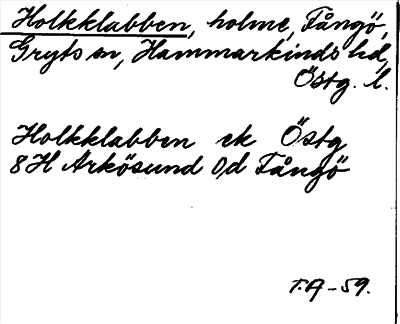 Holkklabben, holme, Fångö,
Gryts sn, Hammarkinds hd,
Östg. l.
Holkklabben ek Östg
8H Arkösund 0d Fångö
T.A-59.